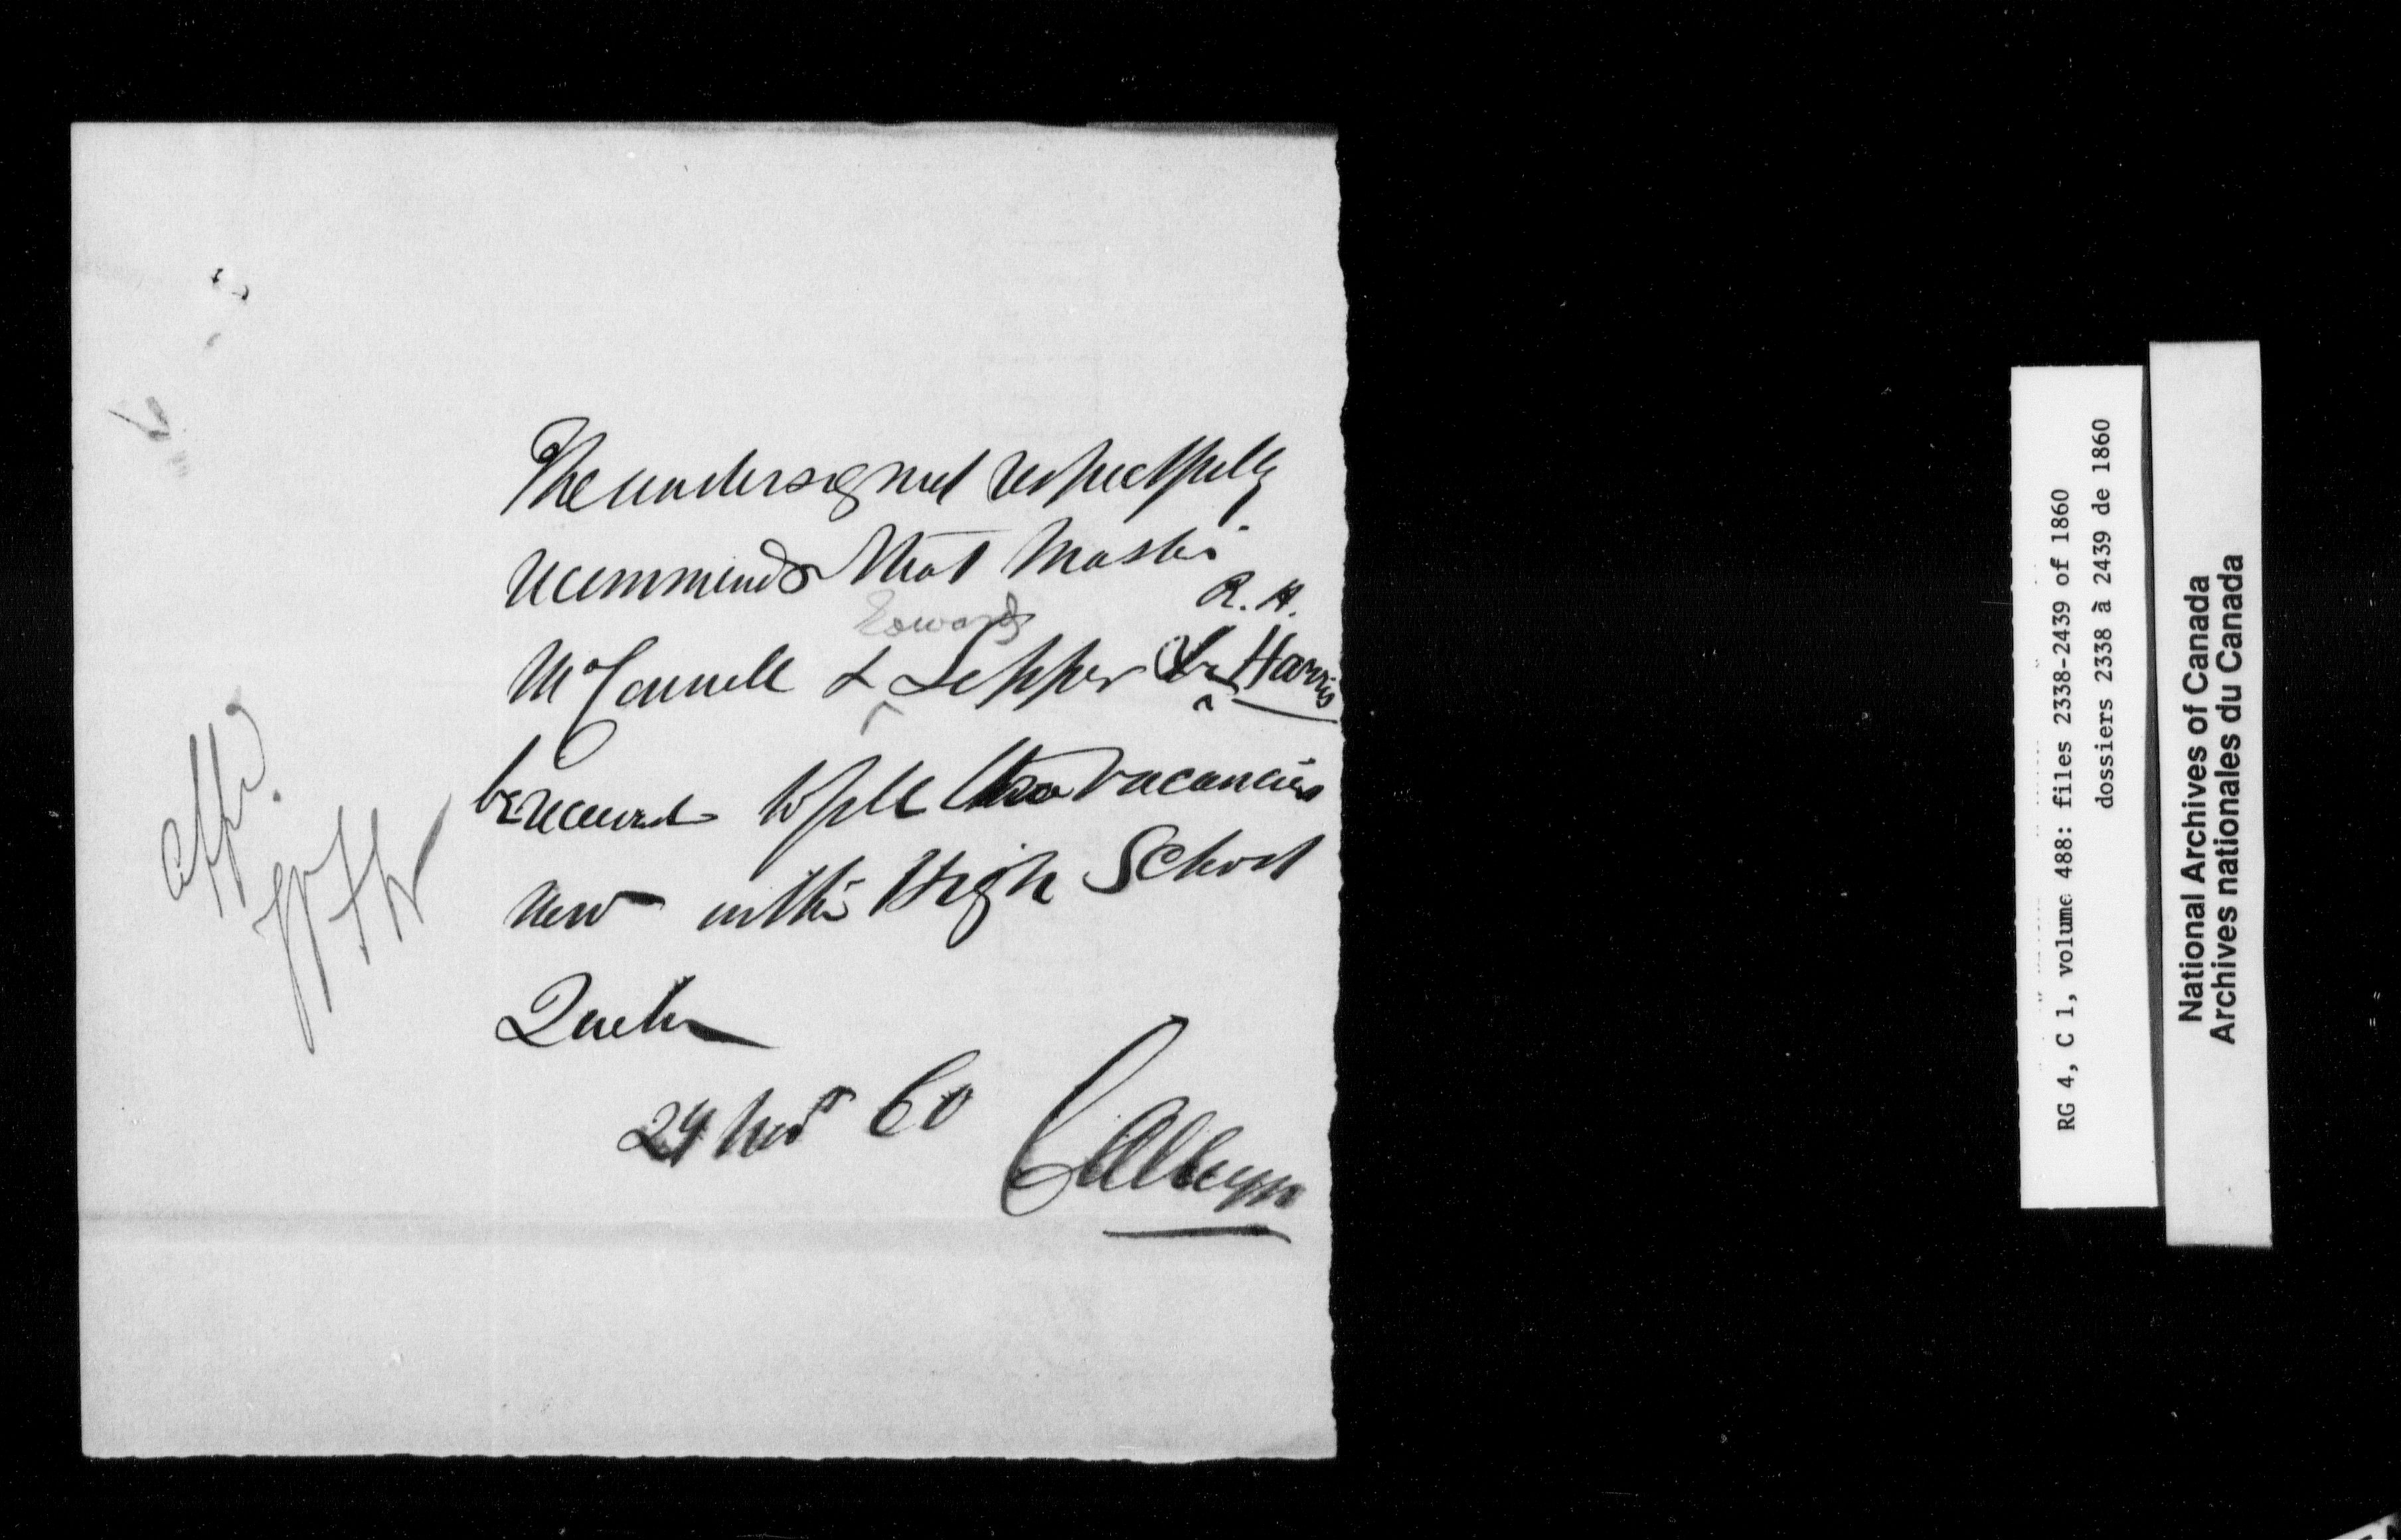 The undersigned respectfully
recommends that Master
Edward R. H.
McConnell & Lepper & Harris
be received to fill the vacancies
now in the High School
Quebec
29 Nov 60
C Alleyn
RG 4, C 1, volume 488: files 2338-2439 of 1860
dossiers 2338 à 2439 de 1860
National Archives of Canada
Archives nationales du Canada